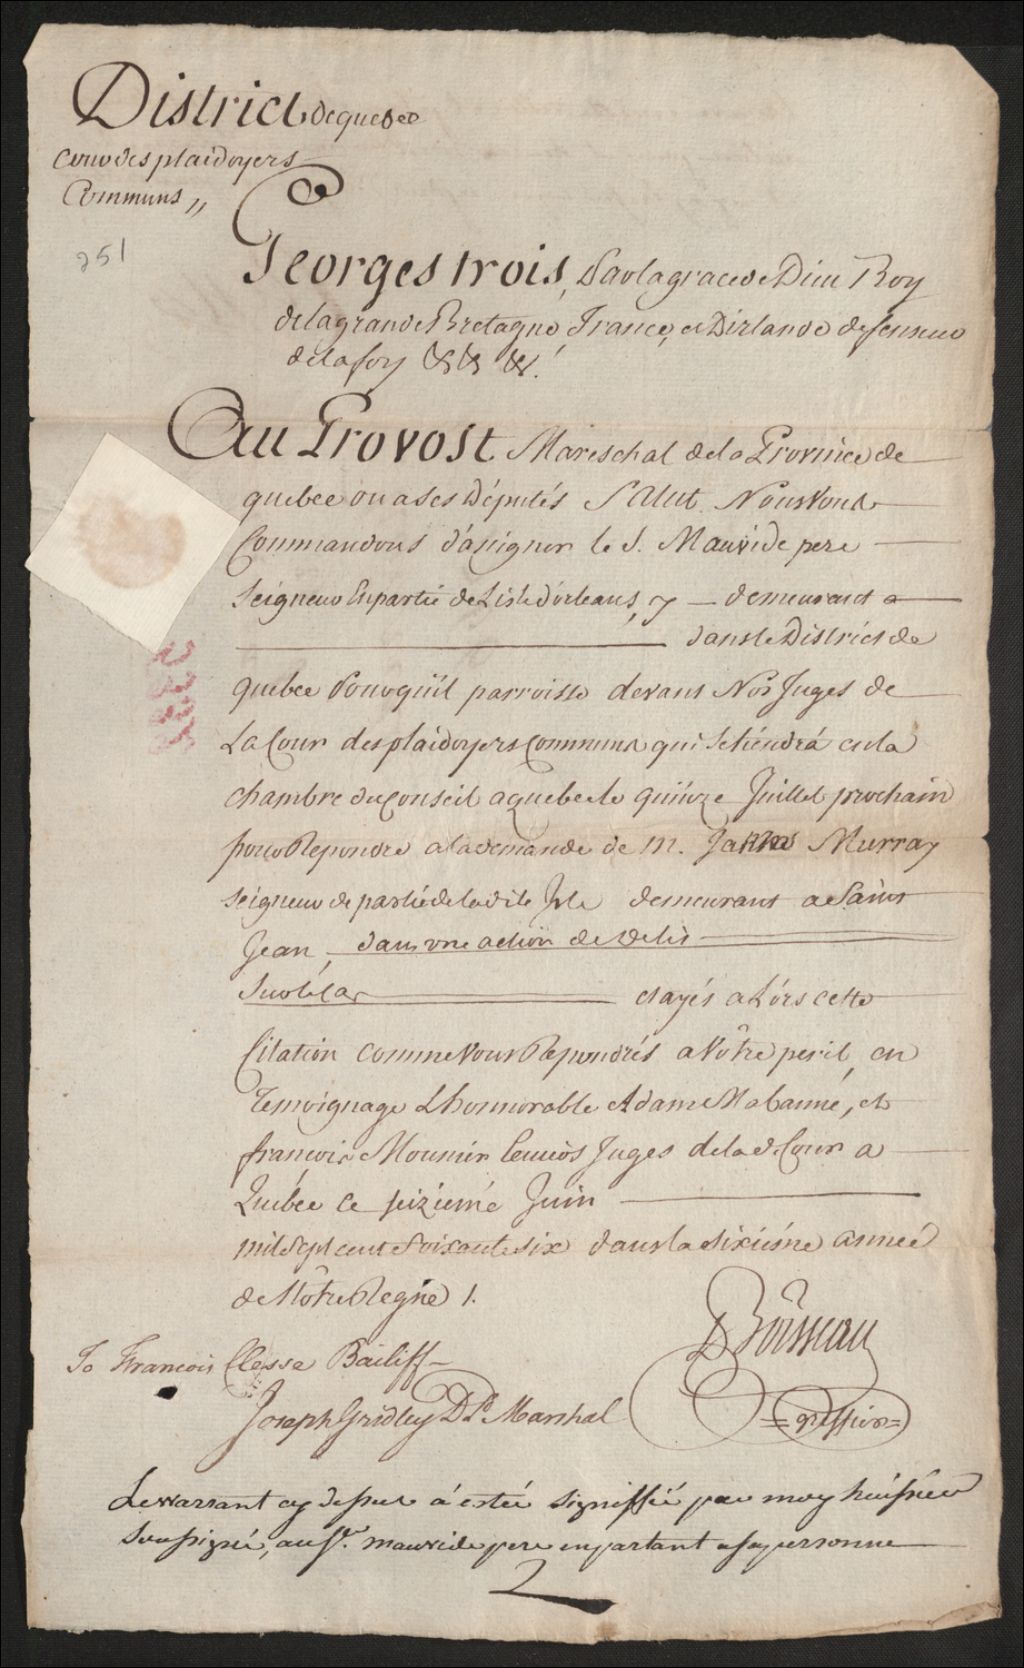 District de quebec
Cour des plaidoyers
Communs //
251
Georges trois, Par la grace de Dieu Roy
de la grande Bretagne, France, et D'irlande defenseur
de la foy &c &c &c.
Au Provost Mareschal de la Province de
quebec ou a ses Députés Salut. Nous Vous
Commandons d'assigner le S. Mauvide pere
Seigneur En partie de L'isle d'orleans, y demeurant a
dans le District de
quebec Pour qu'il parroisse devant Nos Juges de
La Cour des plaidoyers Communs qui se tiendrá en la
chambre du Conseil a quebec le quinze Juillet prochain
pour Repondre a la demande de M. James Murray
seigneur de partie de la dite Isle demeurant a Saint
Jean, dans une action de
Sur le Cas et ayés a Lors cette
Citation comme Vous Repondrés a Vôtre peril, en
Temoignage L'honnorable Adam Mabanne, et
françois Mounier Ecuiers Juges de la d. Cour a
Québec ce seizieme Juin
mil Sept cent Soixante six dans la sixiéme année
de Nôtre Regne /.
PBoisseau
To Francois Clesse Bailiff
Joseph Gridley Dp. Marshal
greffier
Le warrant cy dessus á estée signiffié par moy huissier
Soussigné, au Sr. mauvide pere en parlant a sa personne